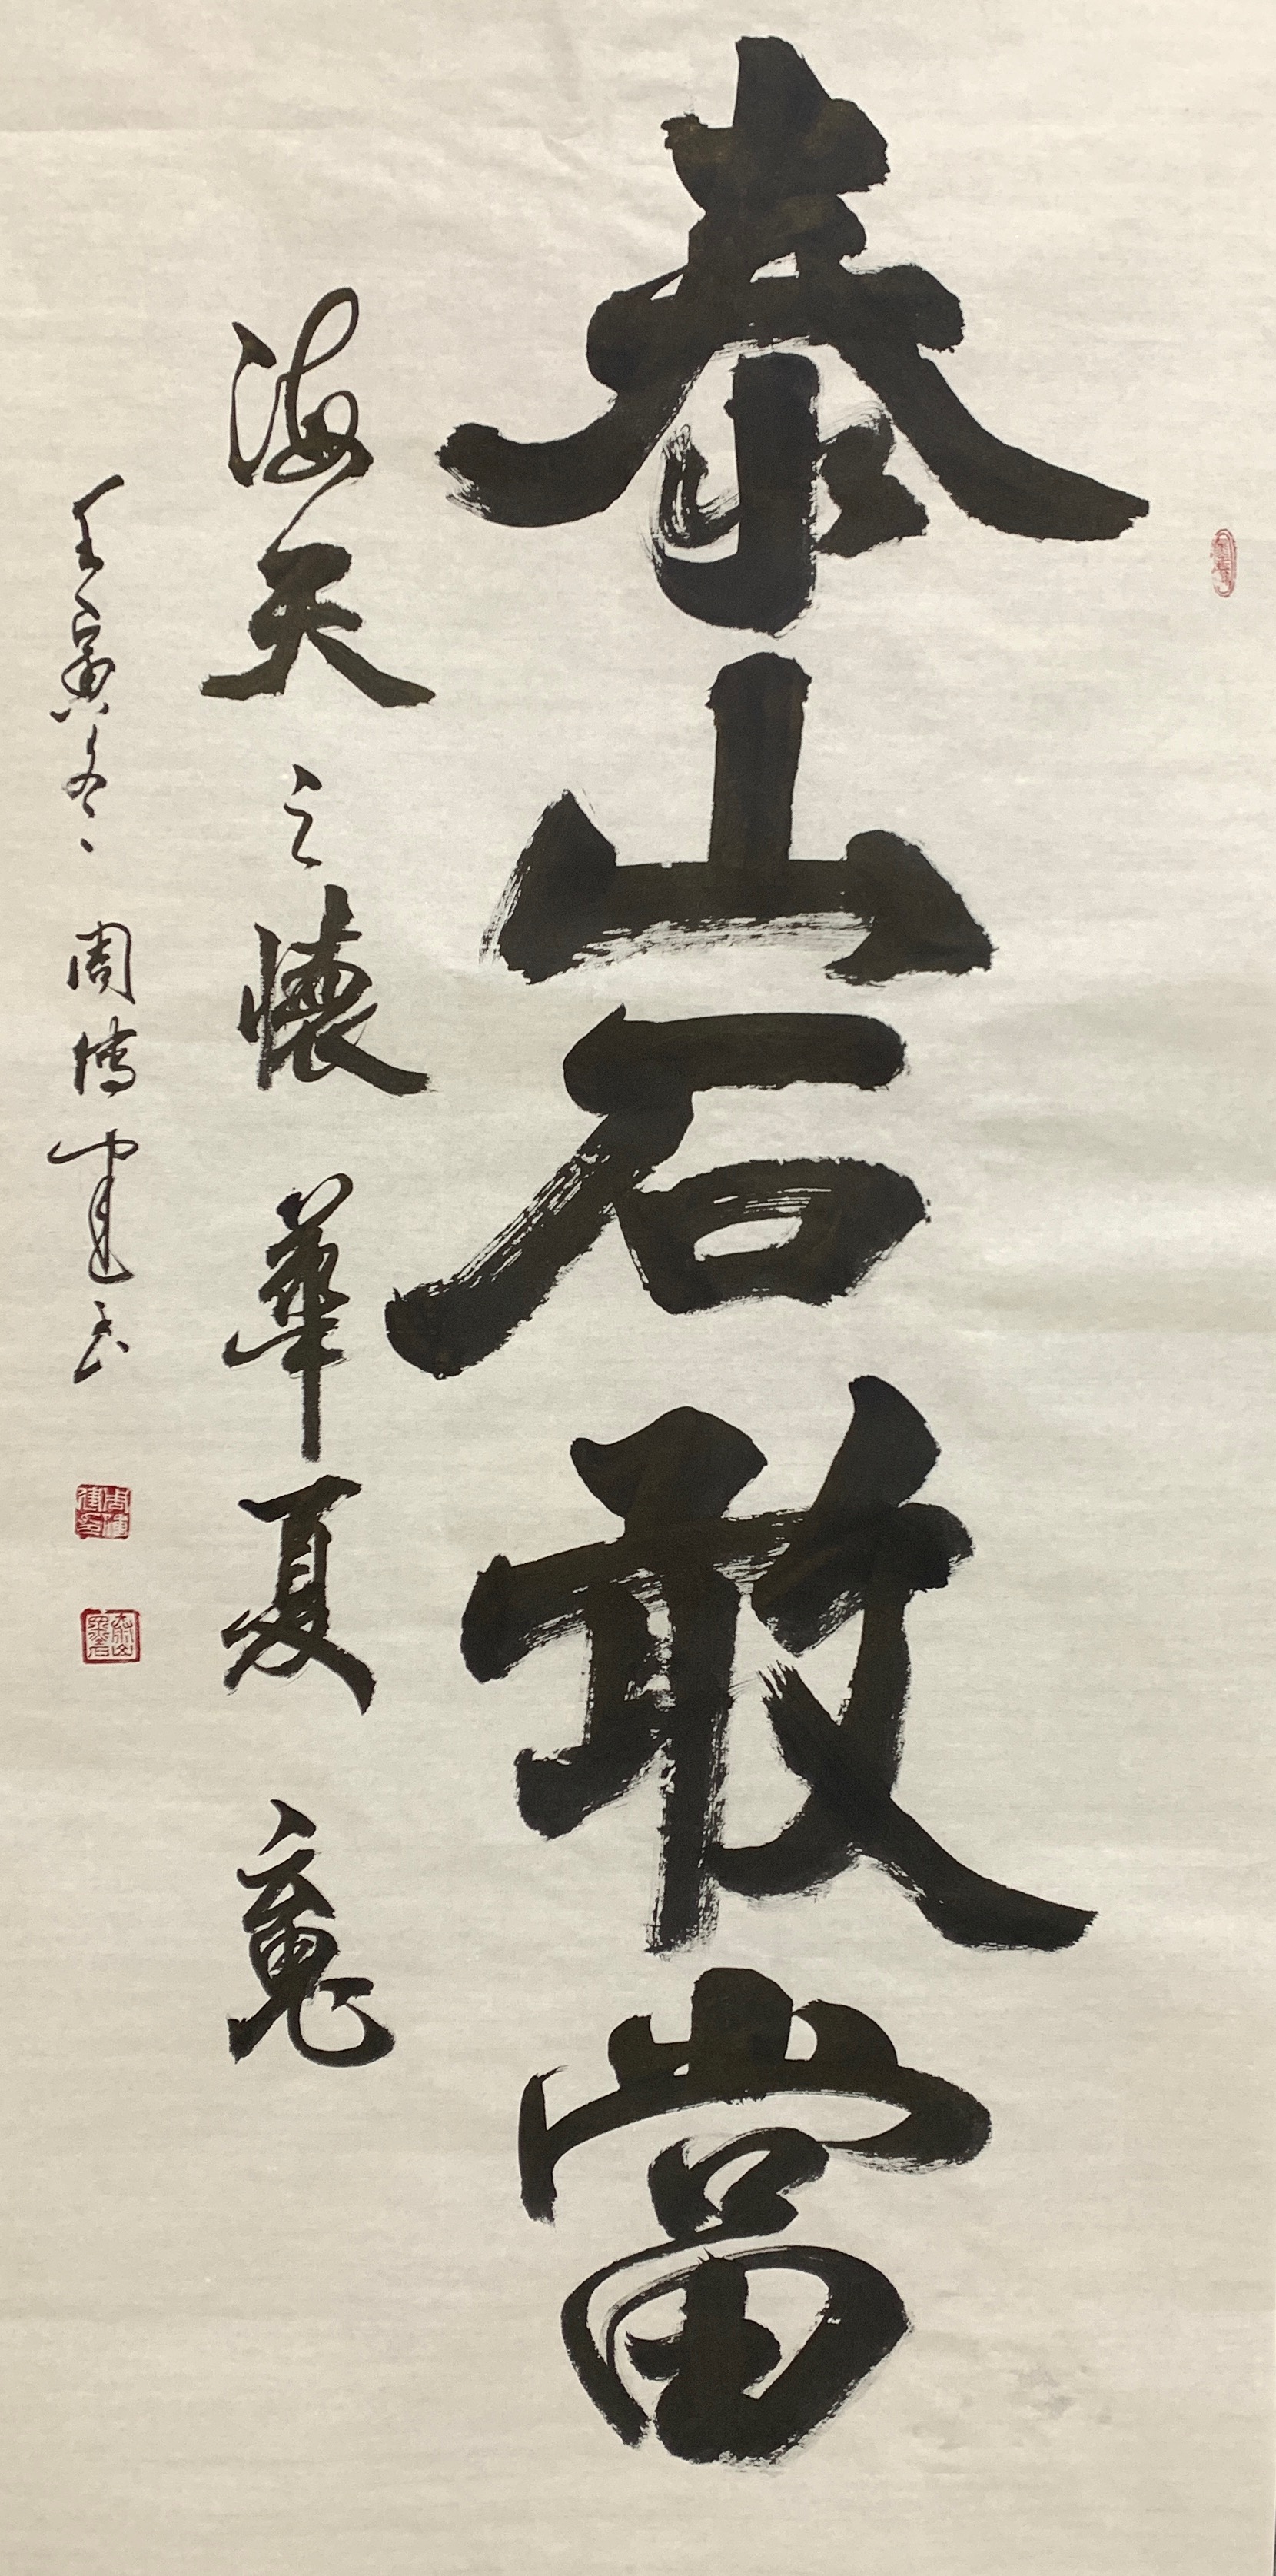 泰山石敢當
海天之懷華夏魂
壬寅冬、周博建書